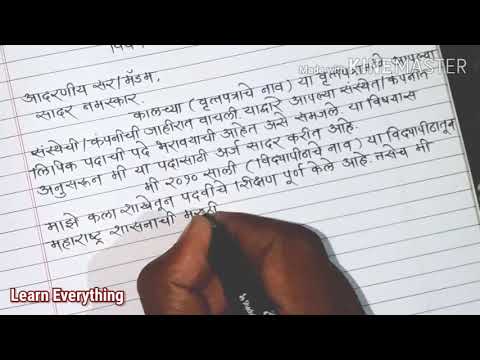 Made with KINEMASTER
आदरणीय सर/मॅडम,
सादर नमस्कार.
कालच्या (वृत्तपत्राचे नाव) या आपल्या
संस्थेची/कंपनीची जाहीरात वाचली. याद्वारे आपल्या संस्थेत/कंपनीत
लिपिक पदाची पदे भरावयाची आहेत असे समजले या विषयास
अनुसरून मी या पदासाठी अर्ज सादर करीत आहे.
मी २०१० साली (विद्यापीठाचे नाव) या विद्यापीठातून
माझे कला शाखेतून पदवीचे शिक्षण पूर्ण केले आहे. तसेच मी
महाराष्ट्र शासनाची
Learn Everything